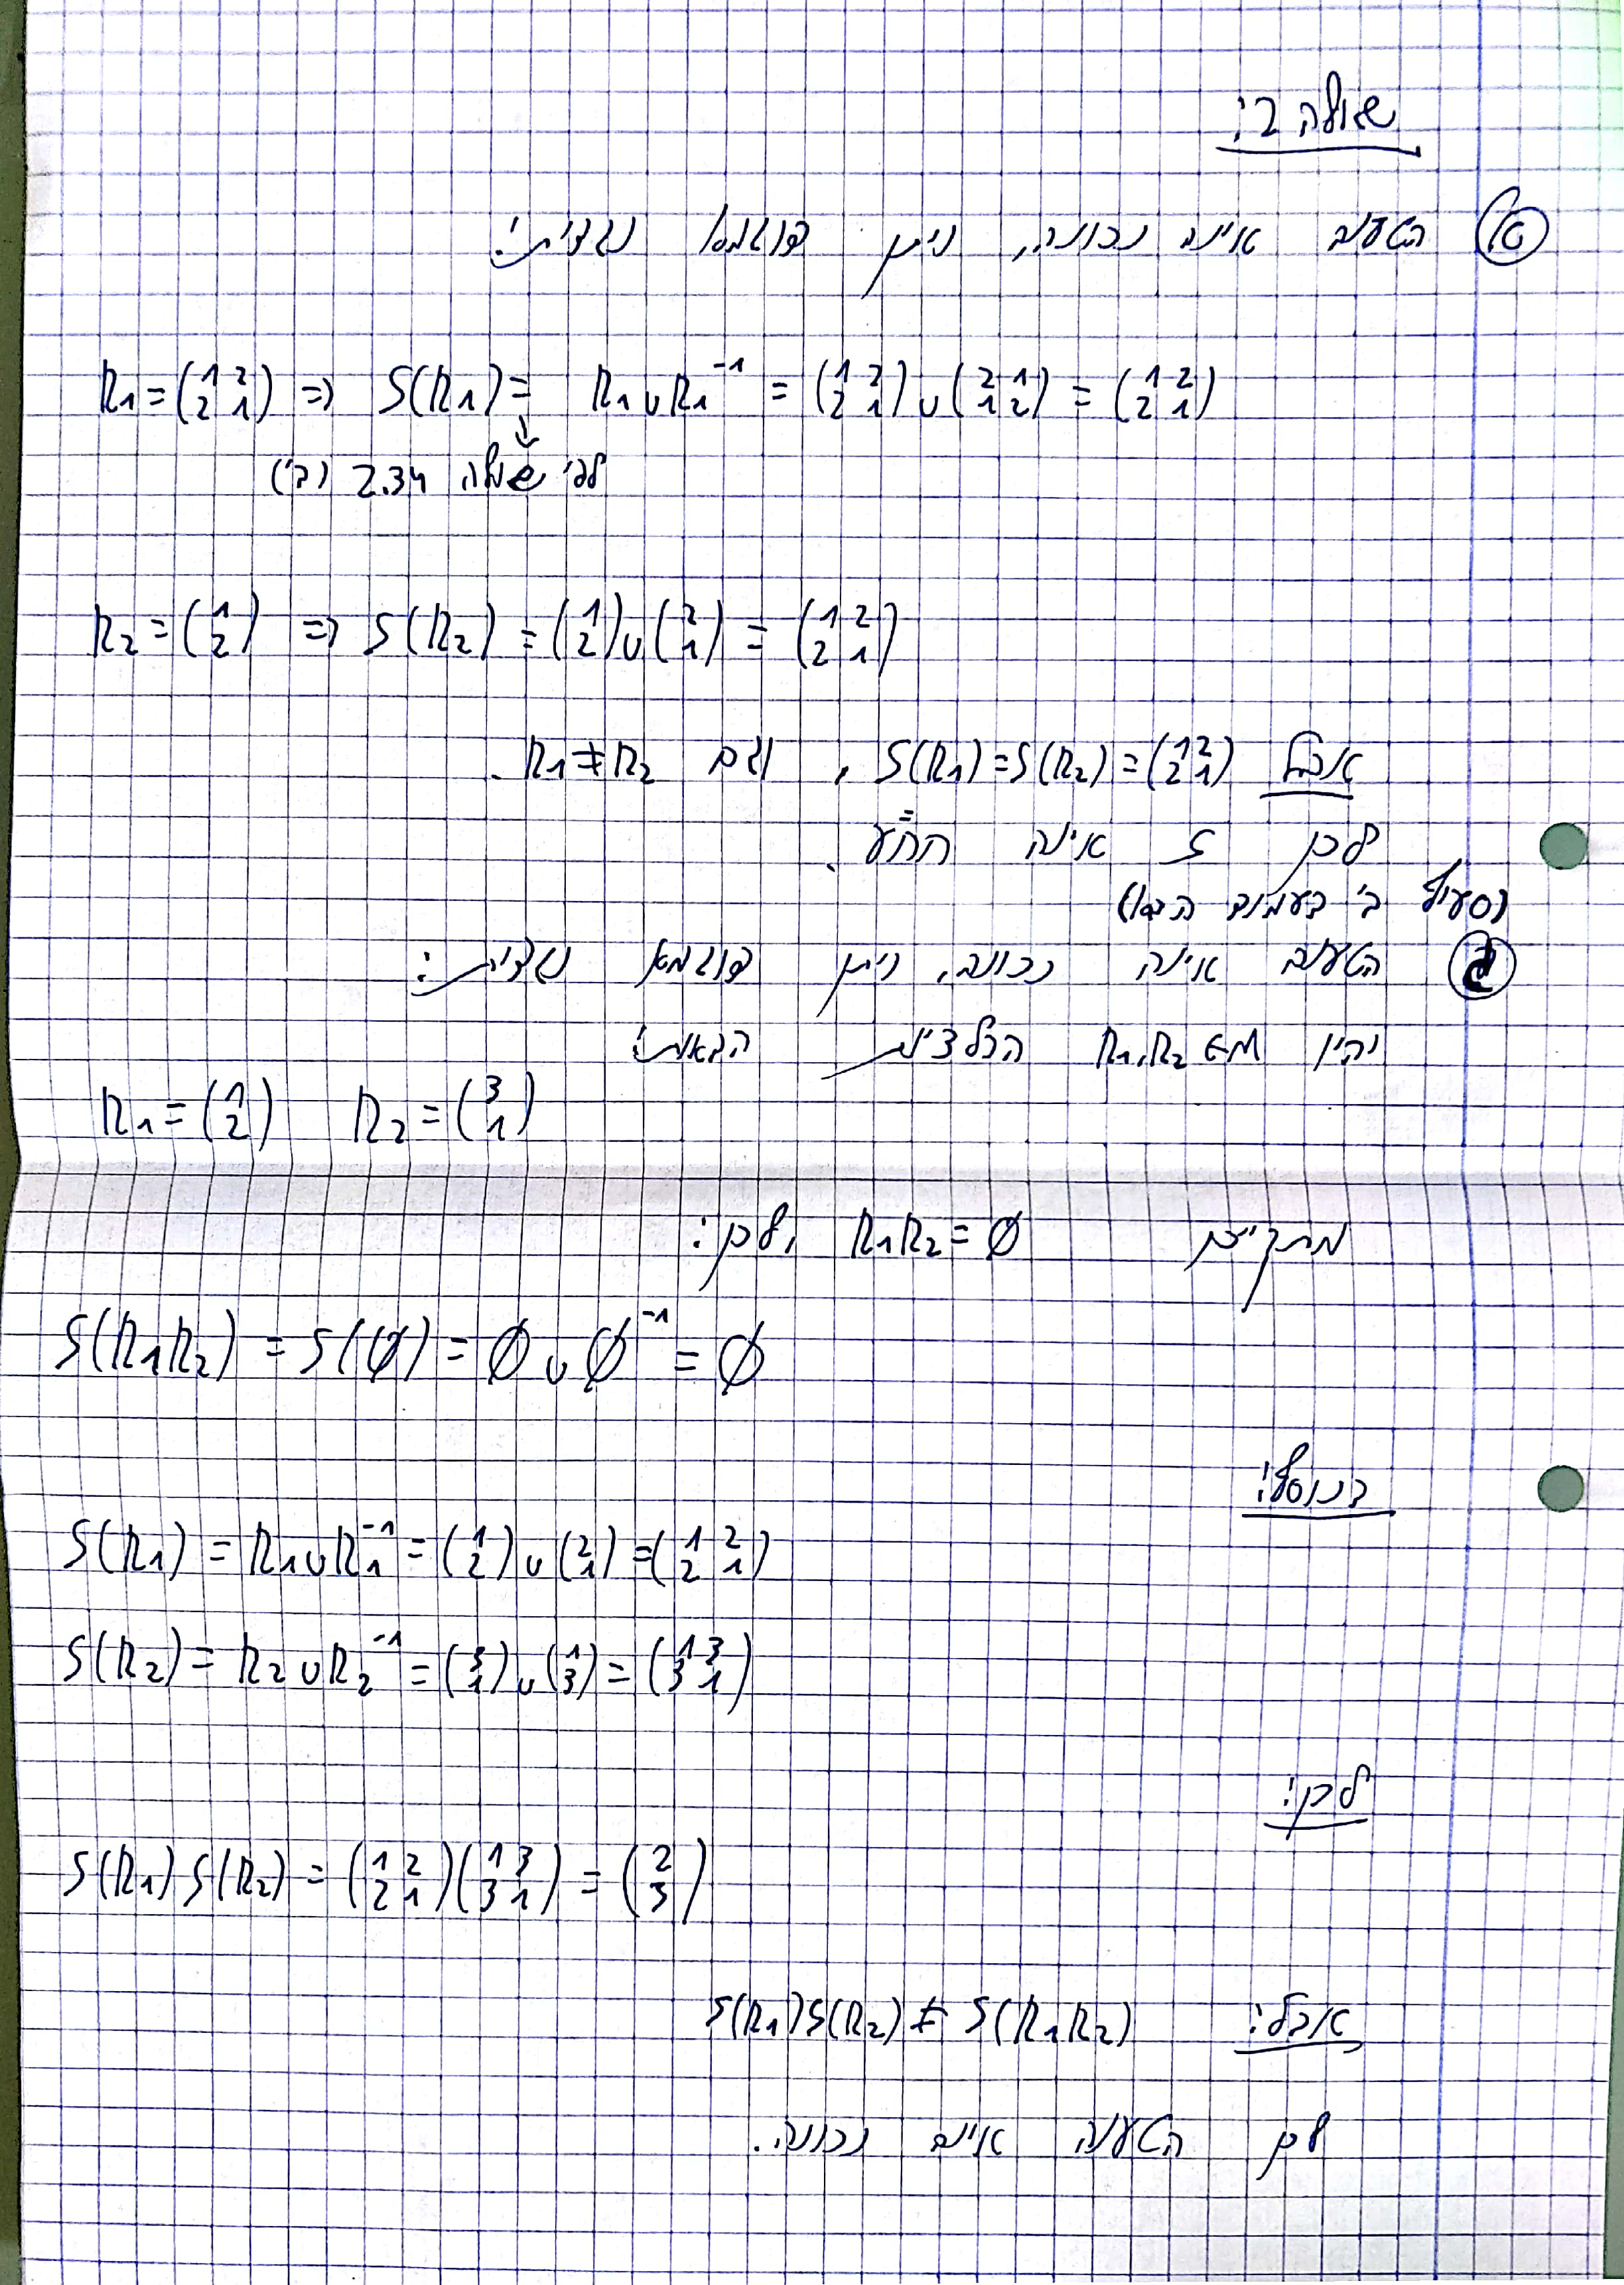 שאלה 2:
א) הטענה אינה נכונה, ניתן דוגמא נגדית:
R₁ = (1 2 / 2 1) => S(R₁) = R₁ ∪ R₁⁻¹ = (1 2 / 2 1) ∪ (2 1 / 1 2) = (1 2 / 2 1)
לפי שאלה 2.34 (ב')
R₂ = (1 / 2) => S(R₂) = (1 / 2) ∪ (2 / 1) = (1 2 / 2 1)
אבל S(R₁) = S(R₂) = (1 2 / 2 1), וגם R₁ ≠ R₂.
לכן S אינה חח"ע.
(סעיף ב' בעמוד הבא)
הטענה אינה נכונה, ניתן דוגמא נגדית:
יהיו R₁,R₂ ∈ M הרלציות הבאות:
R₁ = (1 / 2) R₂ = (3 / 1)
מתקיים R₁R₂ = ∅, לכן:
S(R₁R₂) = S(∅) = ∅ ∪ ∅⁻¹ = ∅
בנוסף:
S(R₁) = R₁ ∪ R₁⁻¹ = (1 / 2) ∪ (2 / 1) = (1 2 / 2 1)
S(R₂) = R₂ ∪ R₂⁻¹ = (3 / 1) ∪ (1 / 3) = (1 3 / 3 1)
לכן:
S(R₁)S(R₂) = (1 2 / 2 1)(1 3 / 3 1) = (2 / 3)
אבל: S(R₁)S(R₂) ≠ S(R₁R₂)
לכן הטענה אינה נכונה.